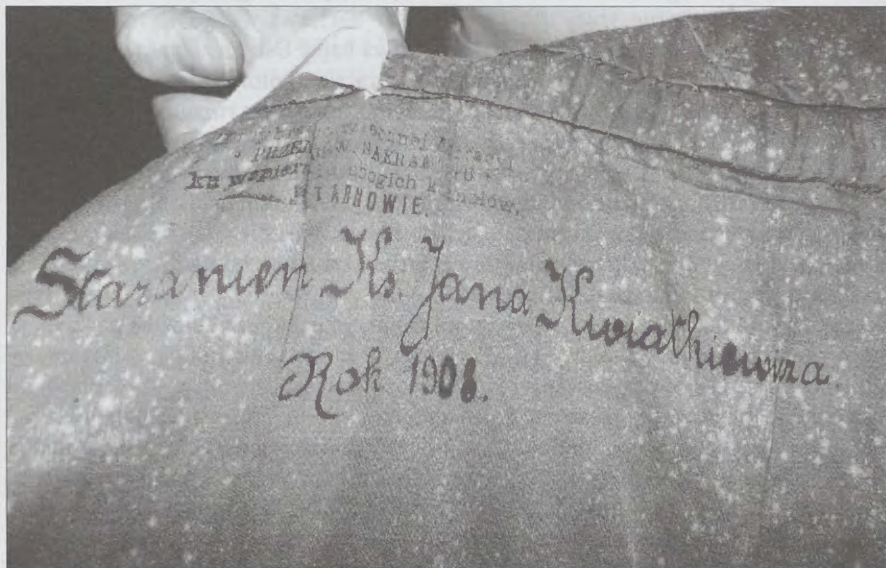 wiecznej Adoracyi
PRZENAJŚW. SAKRAMENTU
ku wspieraniu ubogich kościołów.
W TARNOWIE.
Staraniem Ks. Jana Kwiatkiewicza.
Rok 1908.